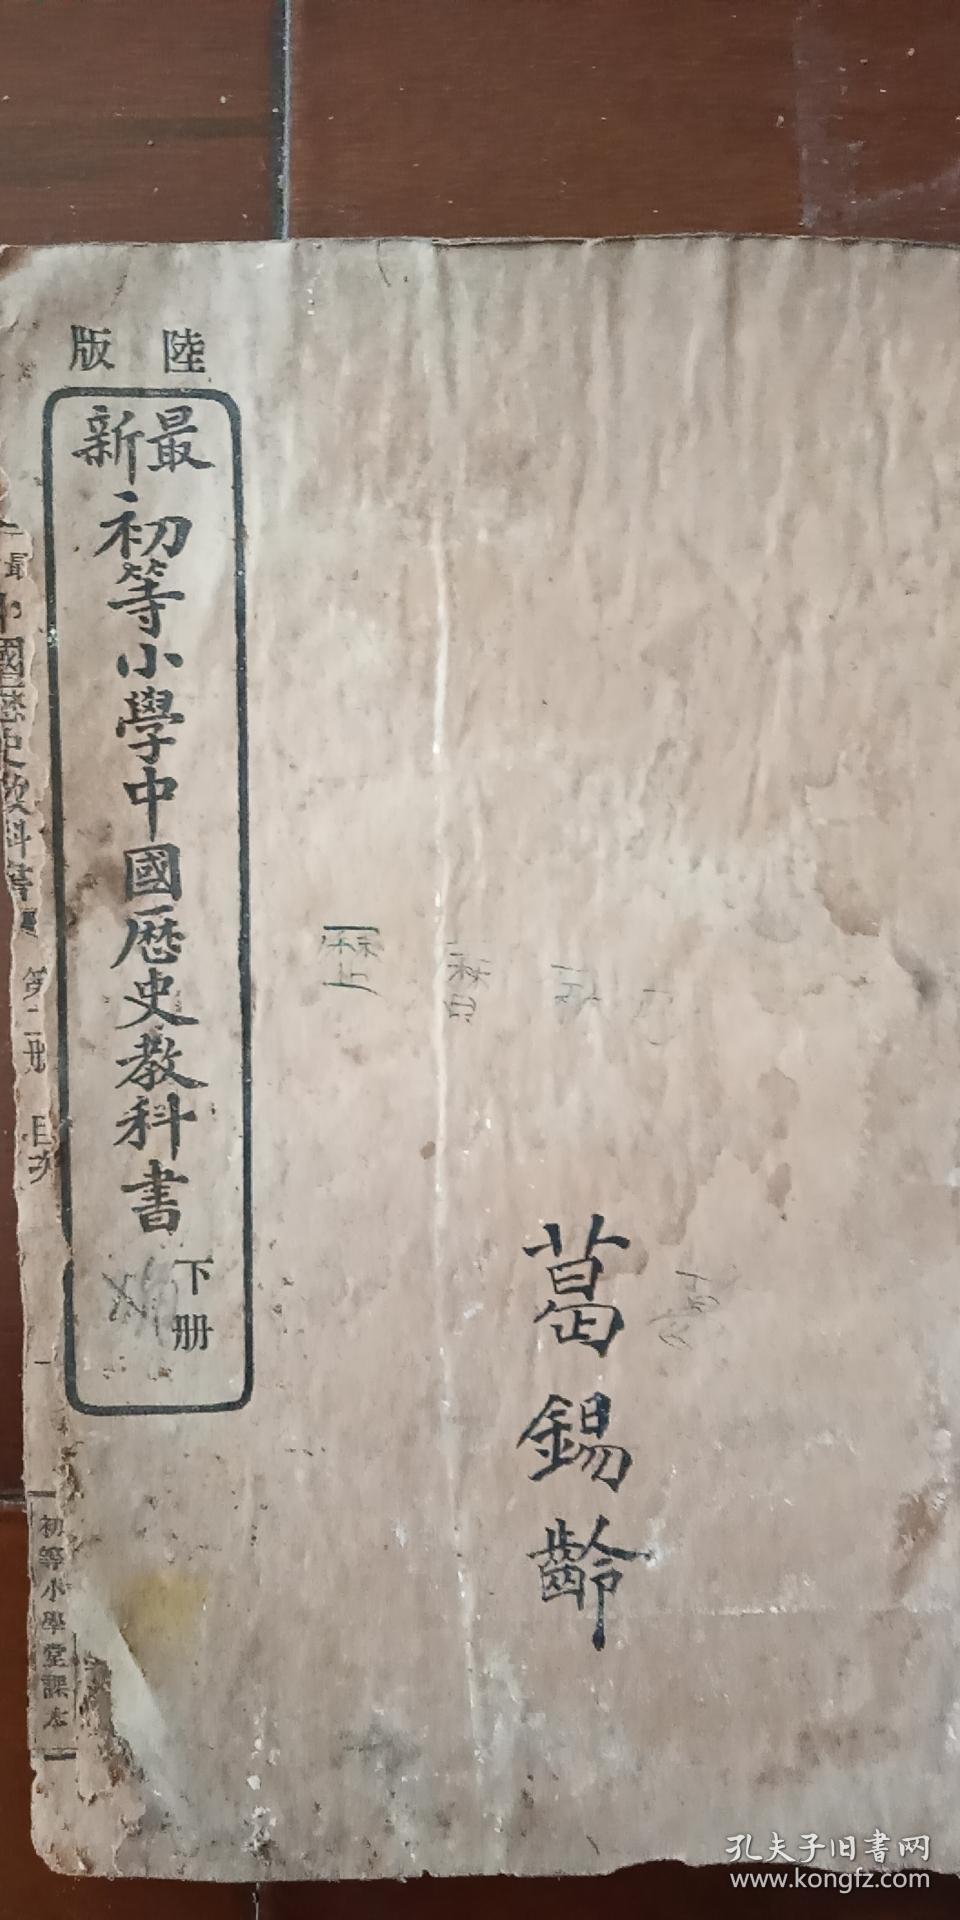 陸版
最新
初等小學中國歷史教科書
下册
葛錫齡
國歷史教科書
第二册
目次
一
初等小學堂課本
孔夫子旧书网
www.kongfz.com